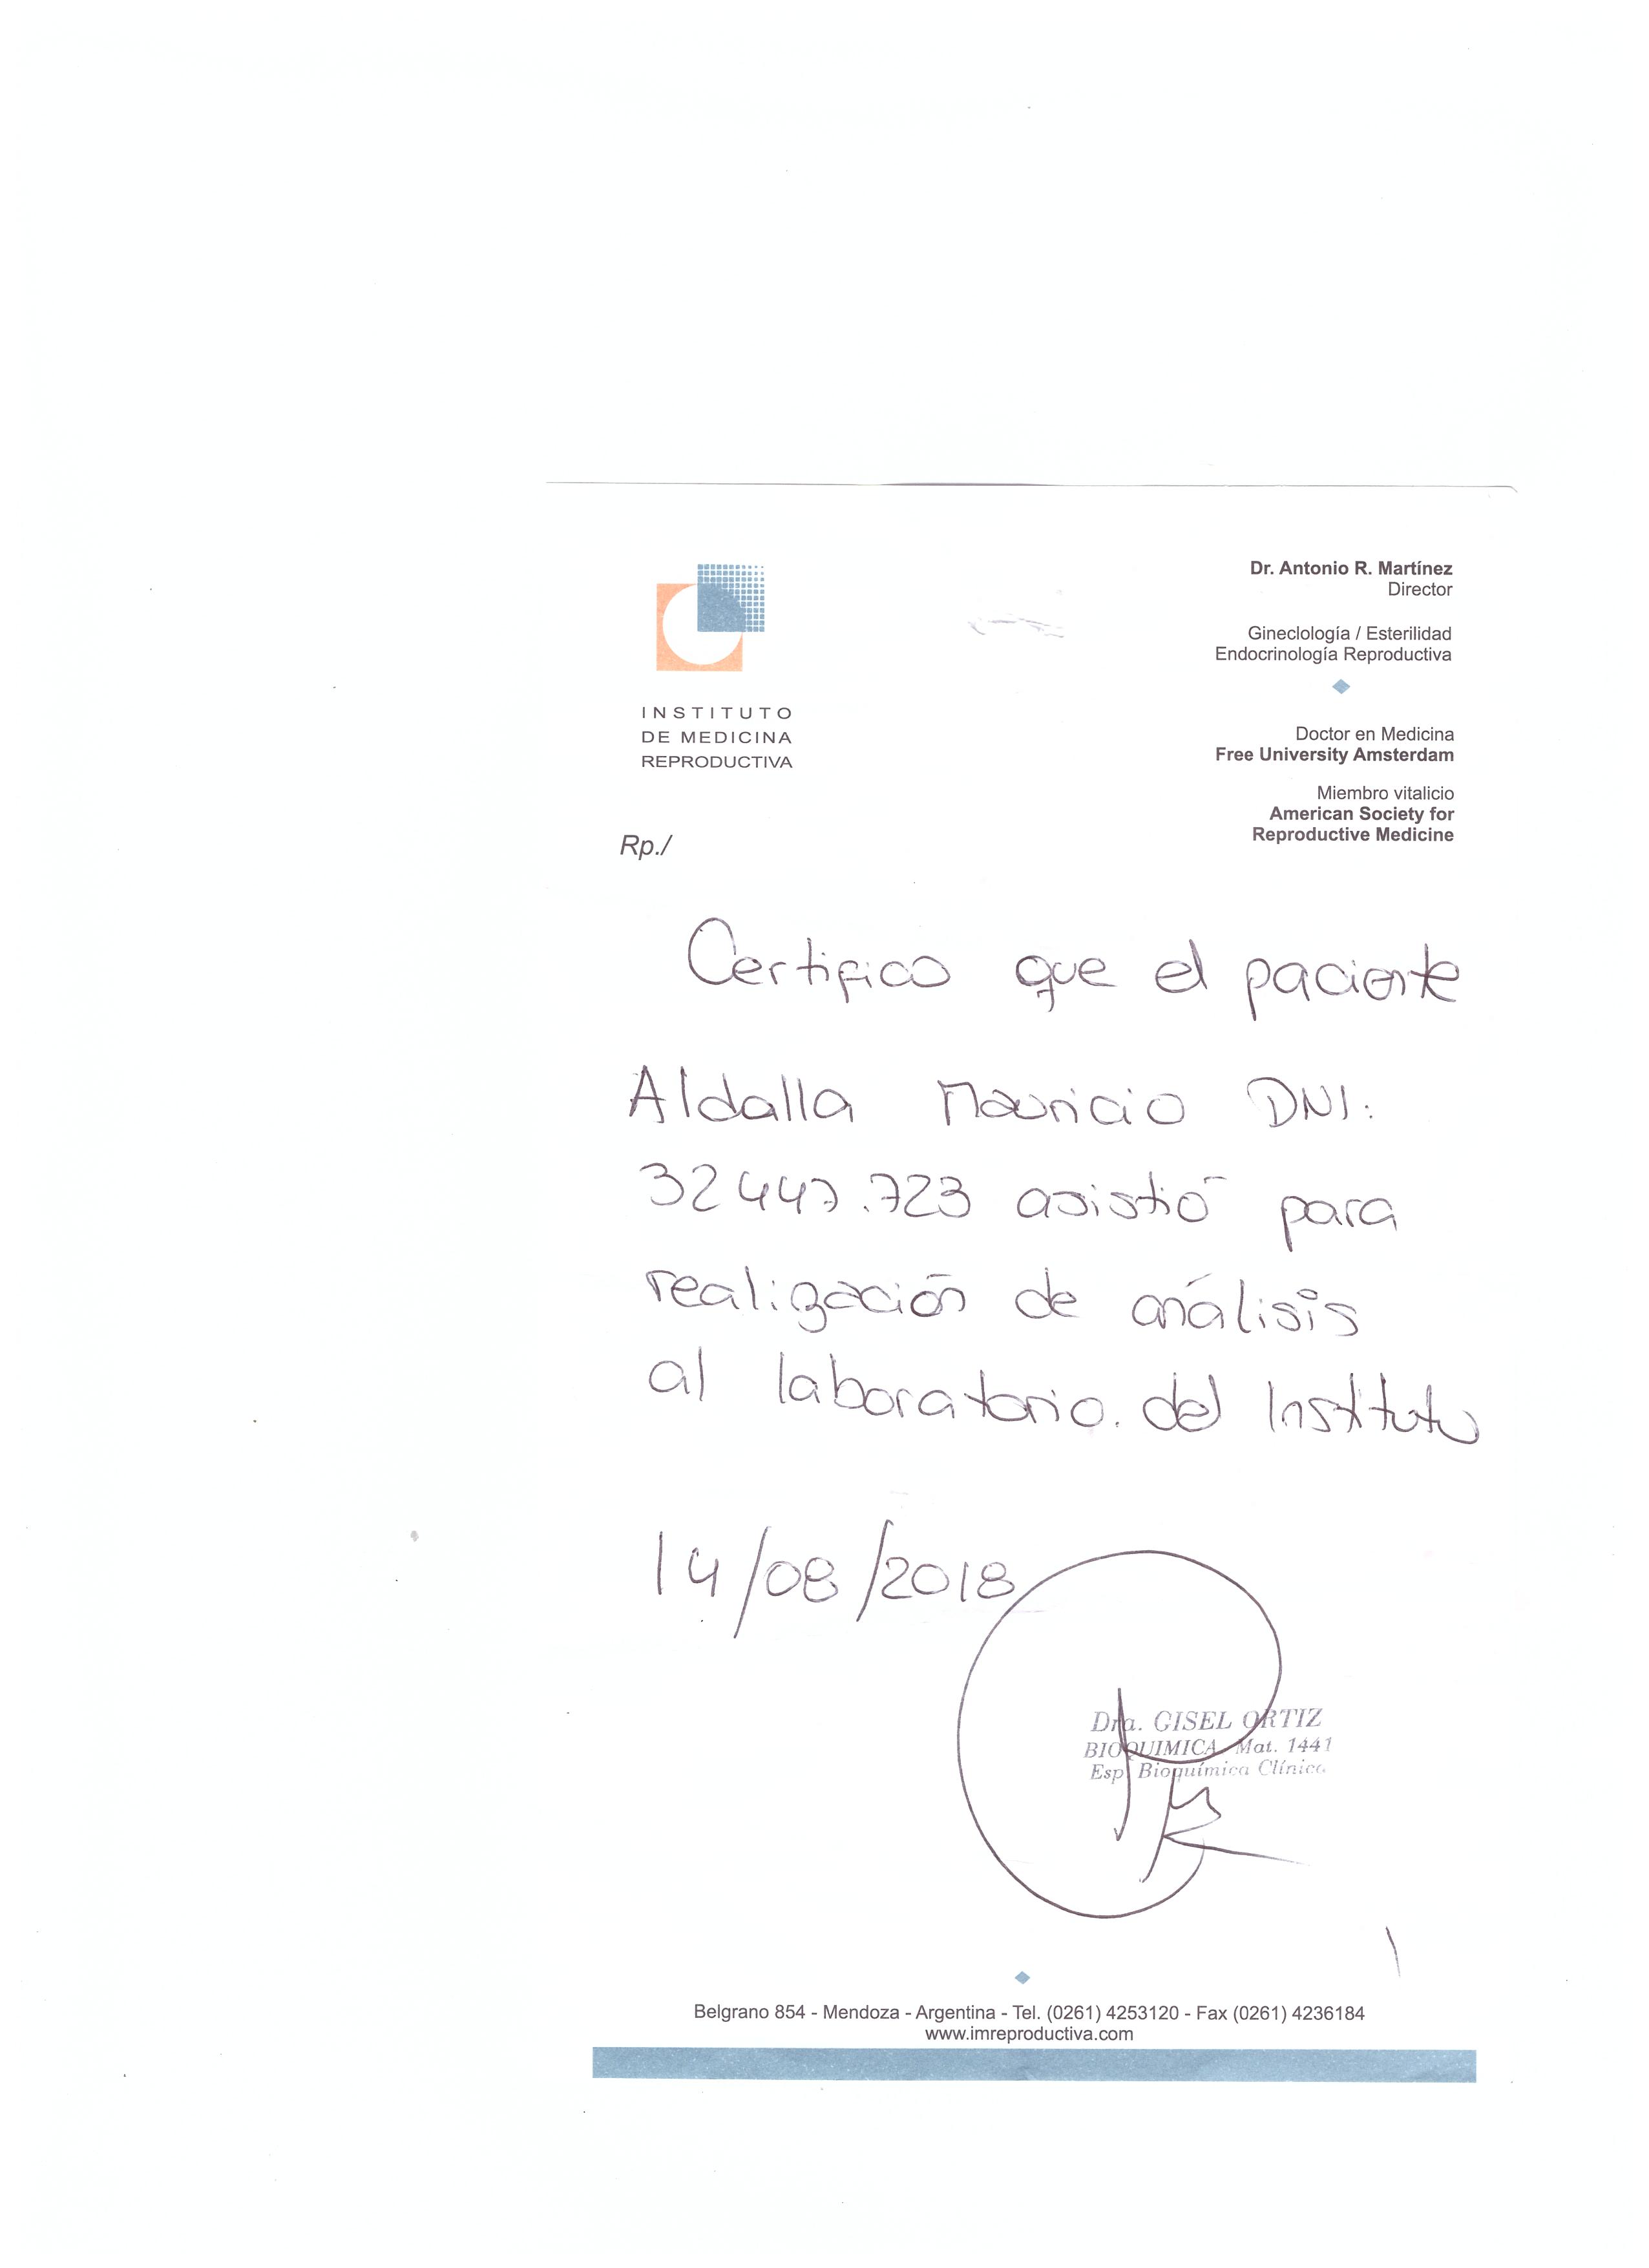 Dr. Antonio R. Martínez
Director
Gineclología / Esterilidad
Endocrinología Reproductiva
Doctor en Medicina
Free University Amsterdam
Miembro vitalicio
American Society for
Reproductive Medicine
INSTITUTO
DE MEDICINA
REPRODUCTIVA
Rp./
Certifico que el paciente
Aldalla Mauricio DNI:
32447.723 asistió para
realización de análisis
al laboratorio. del Instituto
14/08/2018
Dra. GISEL ORTIZ
BIOQUIMICA Mat. 1441
Esp. Bioquímica Clínica
Belgrano 854 - Mendoza - Argentina - Tel. (0261) 4253120 - Fax (0261) 4236184
www.imreproductiva.com